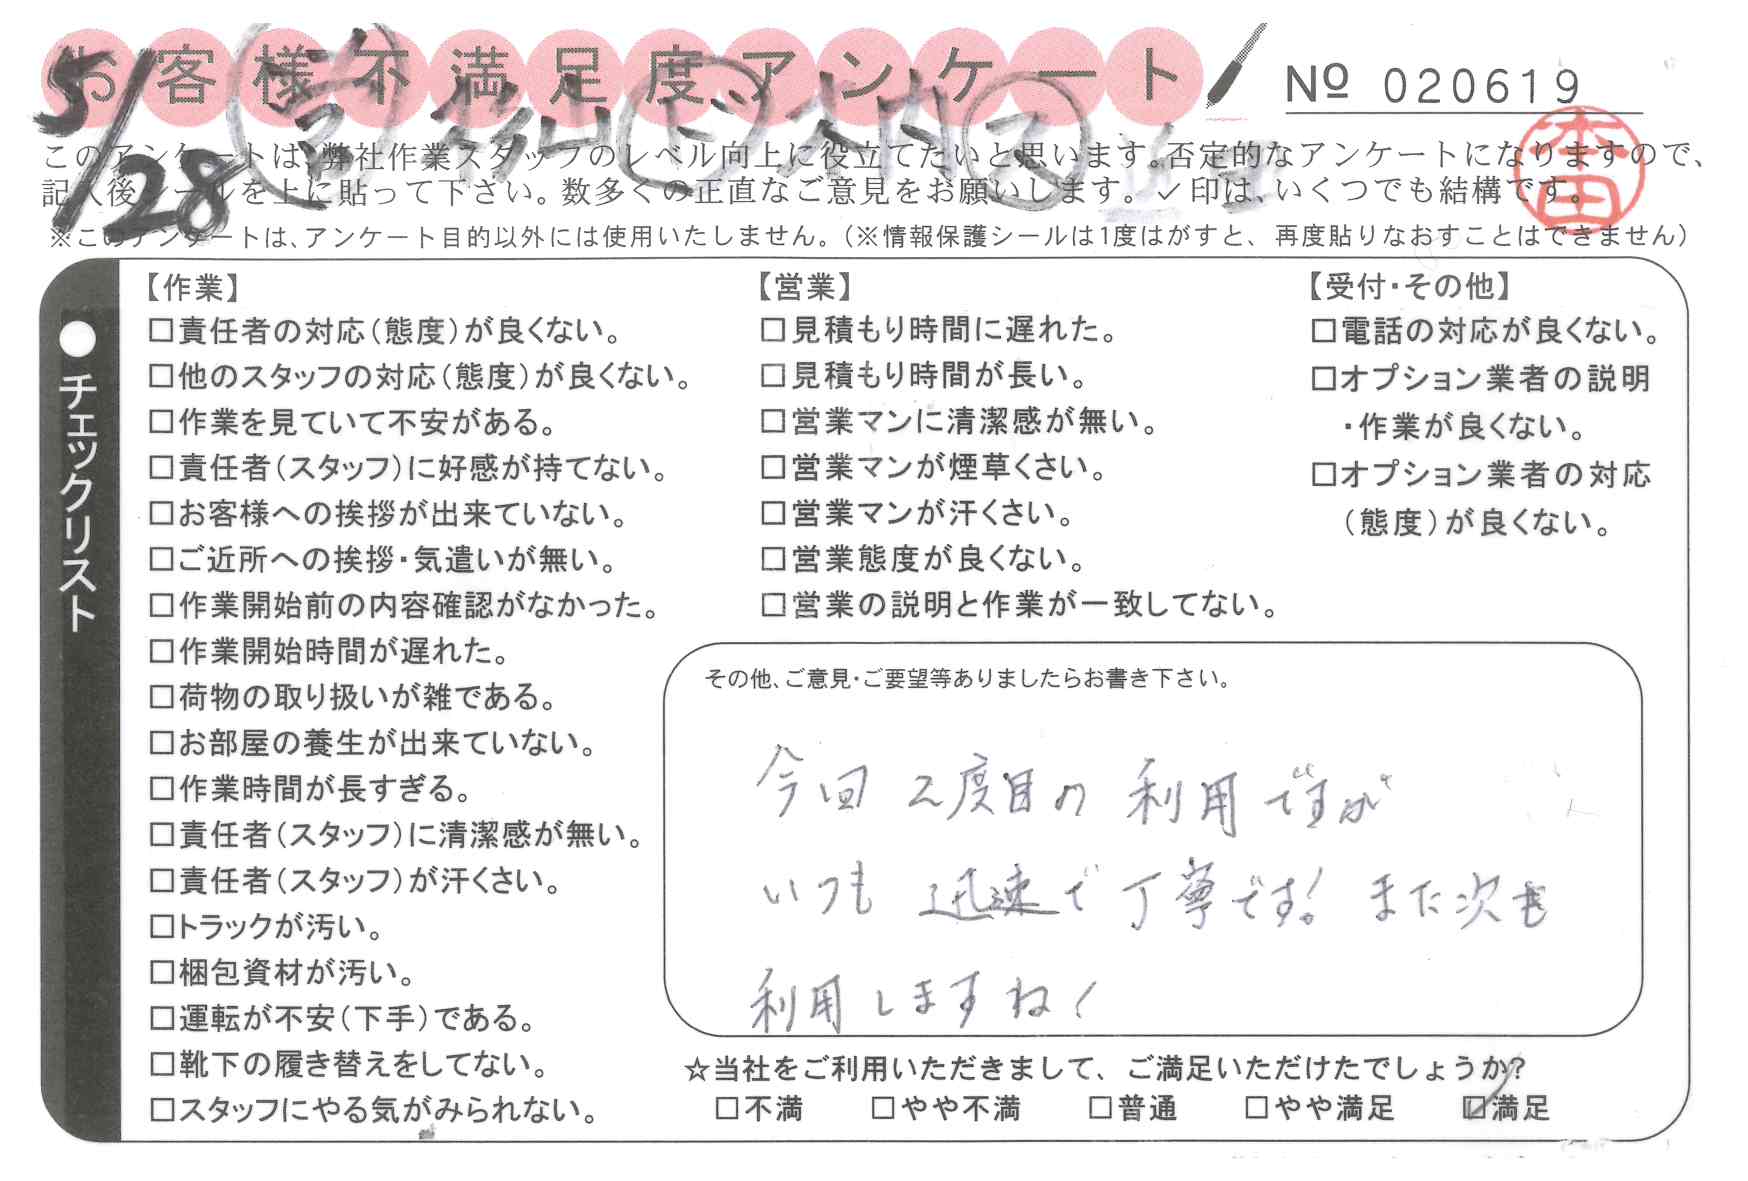 お客様不満足度アンケート
№ 020619
5/28
本田
このアンケートは、弊社作業スタッフのレベル向上に役立てたいと思います。否定的なアンケートになりますので、
記入後シールを上に貼って下さい。数多くの正直なご意見をお願いします。✓印は、いくつでも結構です。
※このアンケートは、アンケート目的以外には使用いたしません。（※情報保護シールは1度はがすと、再度貼りなおすことはできません）
●チェックリスト
【作業】
□責任者の対応（態度）が良くない。
□他のスタッフの対応（態度）が良くない。
□作業を見ていて不安がある。
□責任者（スタッフ）に好感が持てない。
□お客様への挨拶が出来ていない。
□ご近所への挨拶・気遣いが無い。
□作業開始前の内容確認がなかった。
□作業開始時間が遅れた。
□荷物の取り扱いが雑である。
□お部屋の養生が出来ていない。
□作業時間が長すぎる。
□責任者（スタッフ）に清潔感が無い。
□責任者（スタッフ）が汗くさい。
□トラックが汚い。
□梱包資材が汚い。
□運転が不安（下手）である。
□靴下の履き替えをしてない。
□スタッフにやる気がみられない。
【営業】
□見積もり時間に遅れた。
□見積もり時間が長い。
□営業マンに清潔感が無い。
□営業マンが煙草くさい。
□営業マンが汗くさい。
□営業態度が良くない。
□営業の説明と作業が一致してない。
【受付・その他】
□電話の対応が良くない。
□オプション業者の説明
・作業が良くない。
□オプション業者の対応
（態度）が良くない。
その他、ご意見・ご要望等ありましたらお書き下さい。
今回2度目の利用ですが
いつも迅速で丁寧です! また次も
利用しますね!
☆当社をご利用いただきまして、ご満足いただけたでしょうか?
□不満 □やや不満 □普通 □やや満足 ☑満足